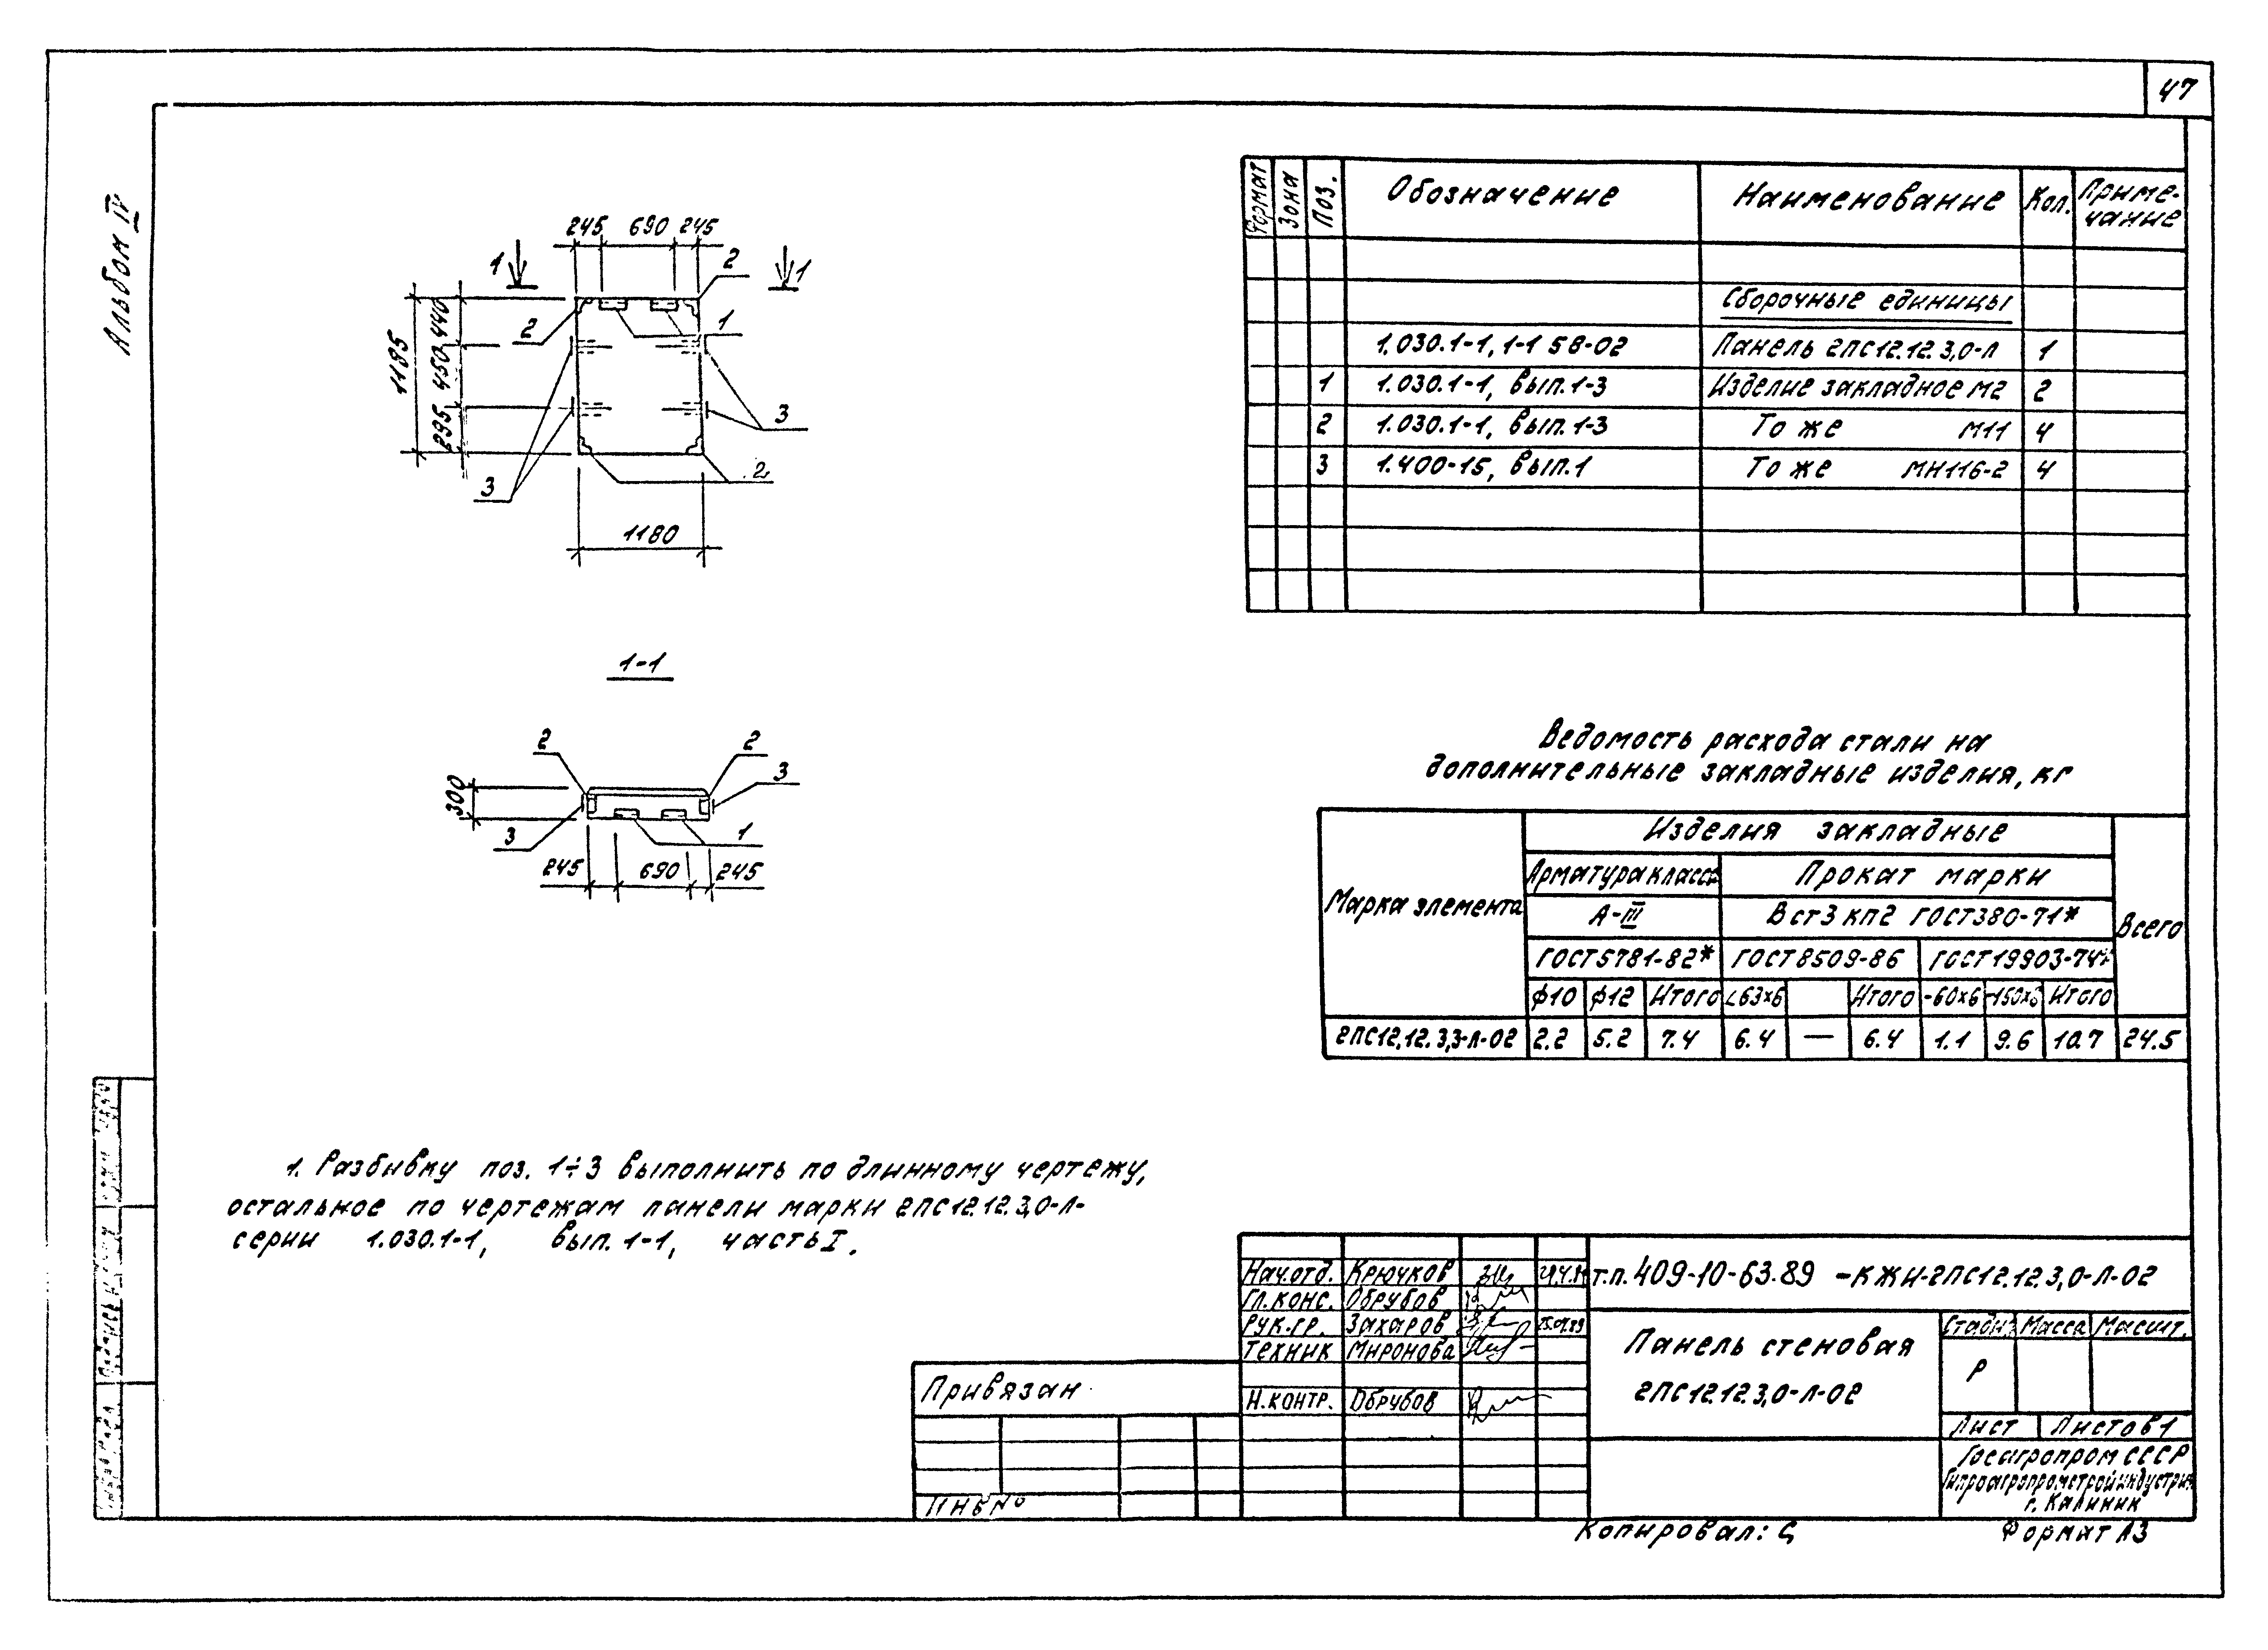 47
Альбом IV
245 690 245
1 1
2
2
1
1185
440
450
295
3
3
2
1180
1-1
2 2
3
300
3
1
245 690 245
Формат Зона Поз. Обозначение Наименование Кол. Приме-
чание
Сборочные единицы
1.030.1-1, 1-1 58-02 Панель 2ПС12.12.3,0-Л 1
1 1.030.1-1, вып.1-3 Изделие закладное М2 2
2 1.030.1-1, вып.1-3 То же М11 4
3 1.400-15, вып.1 То же МН116-2 4
Ведомость расхода стали на
дополнительные закладные изделия, кг
Марка элемента Изделия закладные Всего
Арматура класса Прокат марки
А-III Вст3кп2 ГОСТ380-71*
ГОСТ5781-82* ГОСТ8509-86 ГОСТ19903-74*
ф10 ф12 Итого ∠63х6 Итого -60х6 Итого
2ПС12.12.3,3-Л-02 2.2 5.2 7.4 6.4 — 6.4 1.1 9.6 10.7 24.5
1. Разбивку поз. 1÷3 выполнить по длинному чертежу,
остальное по чертежам панели марки 2ПС12.12.3,0-Л-
серии 1.030.1-1, вып. 1-1, часть I.
Нач.отд. Крючков
Гл.конс. Обрубов
Рук.гр. Захаров
Техник Миронова
Н.контр. Обрубов
т.п. 409-10-63.89 -КЖИ-2ПС12.12.3,0-Л-02
Панель стеновая
2ПС12.12.3,0-Л-02
Стадия Масса Масшт.
Р
Лист Листов 1
Госагропром СССР
Гипроагропромстройиндустрия
г. Калинин
Привязан
Инв №
Копировал: Формат А3